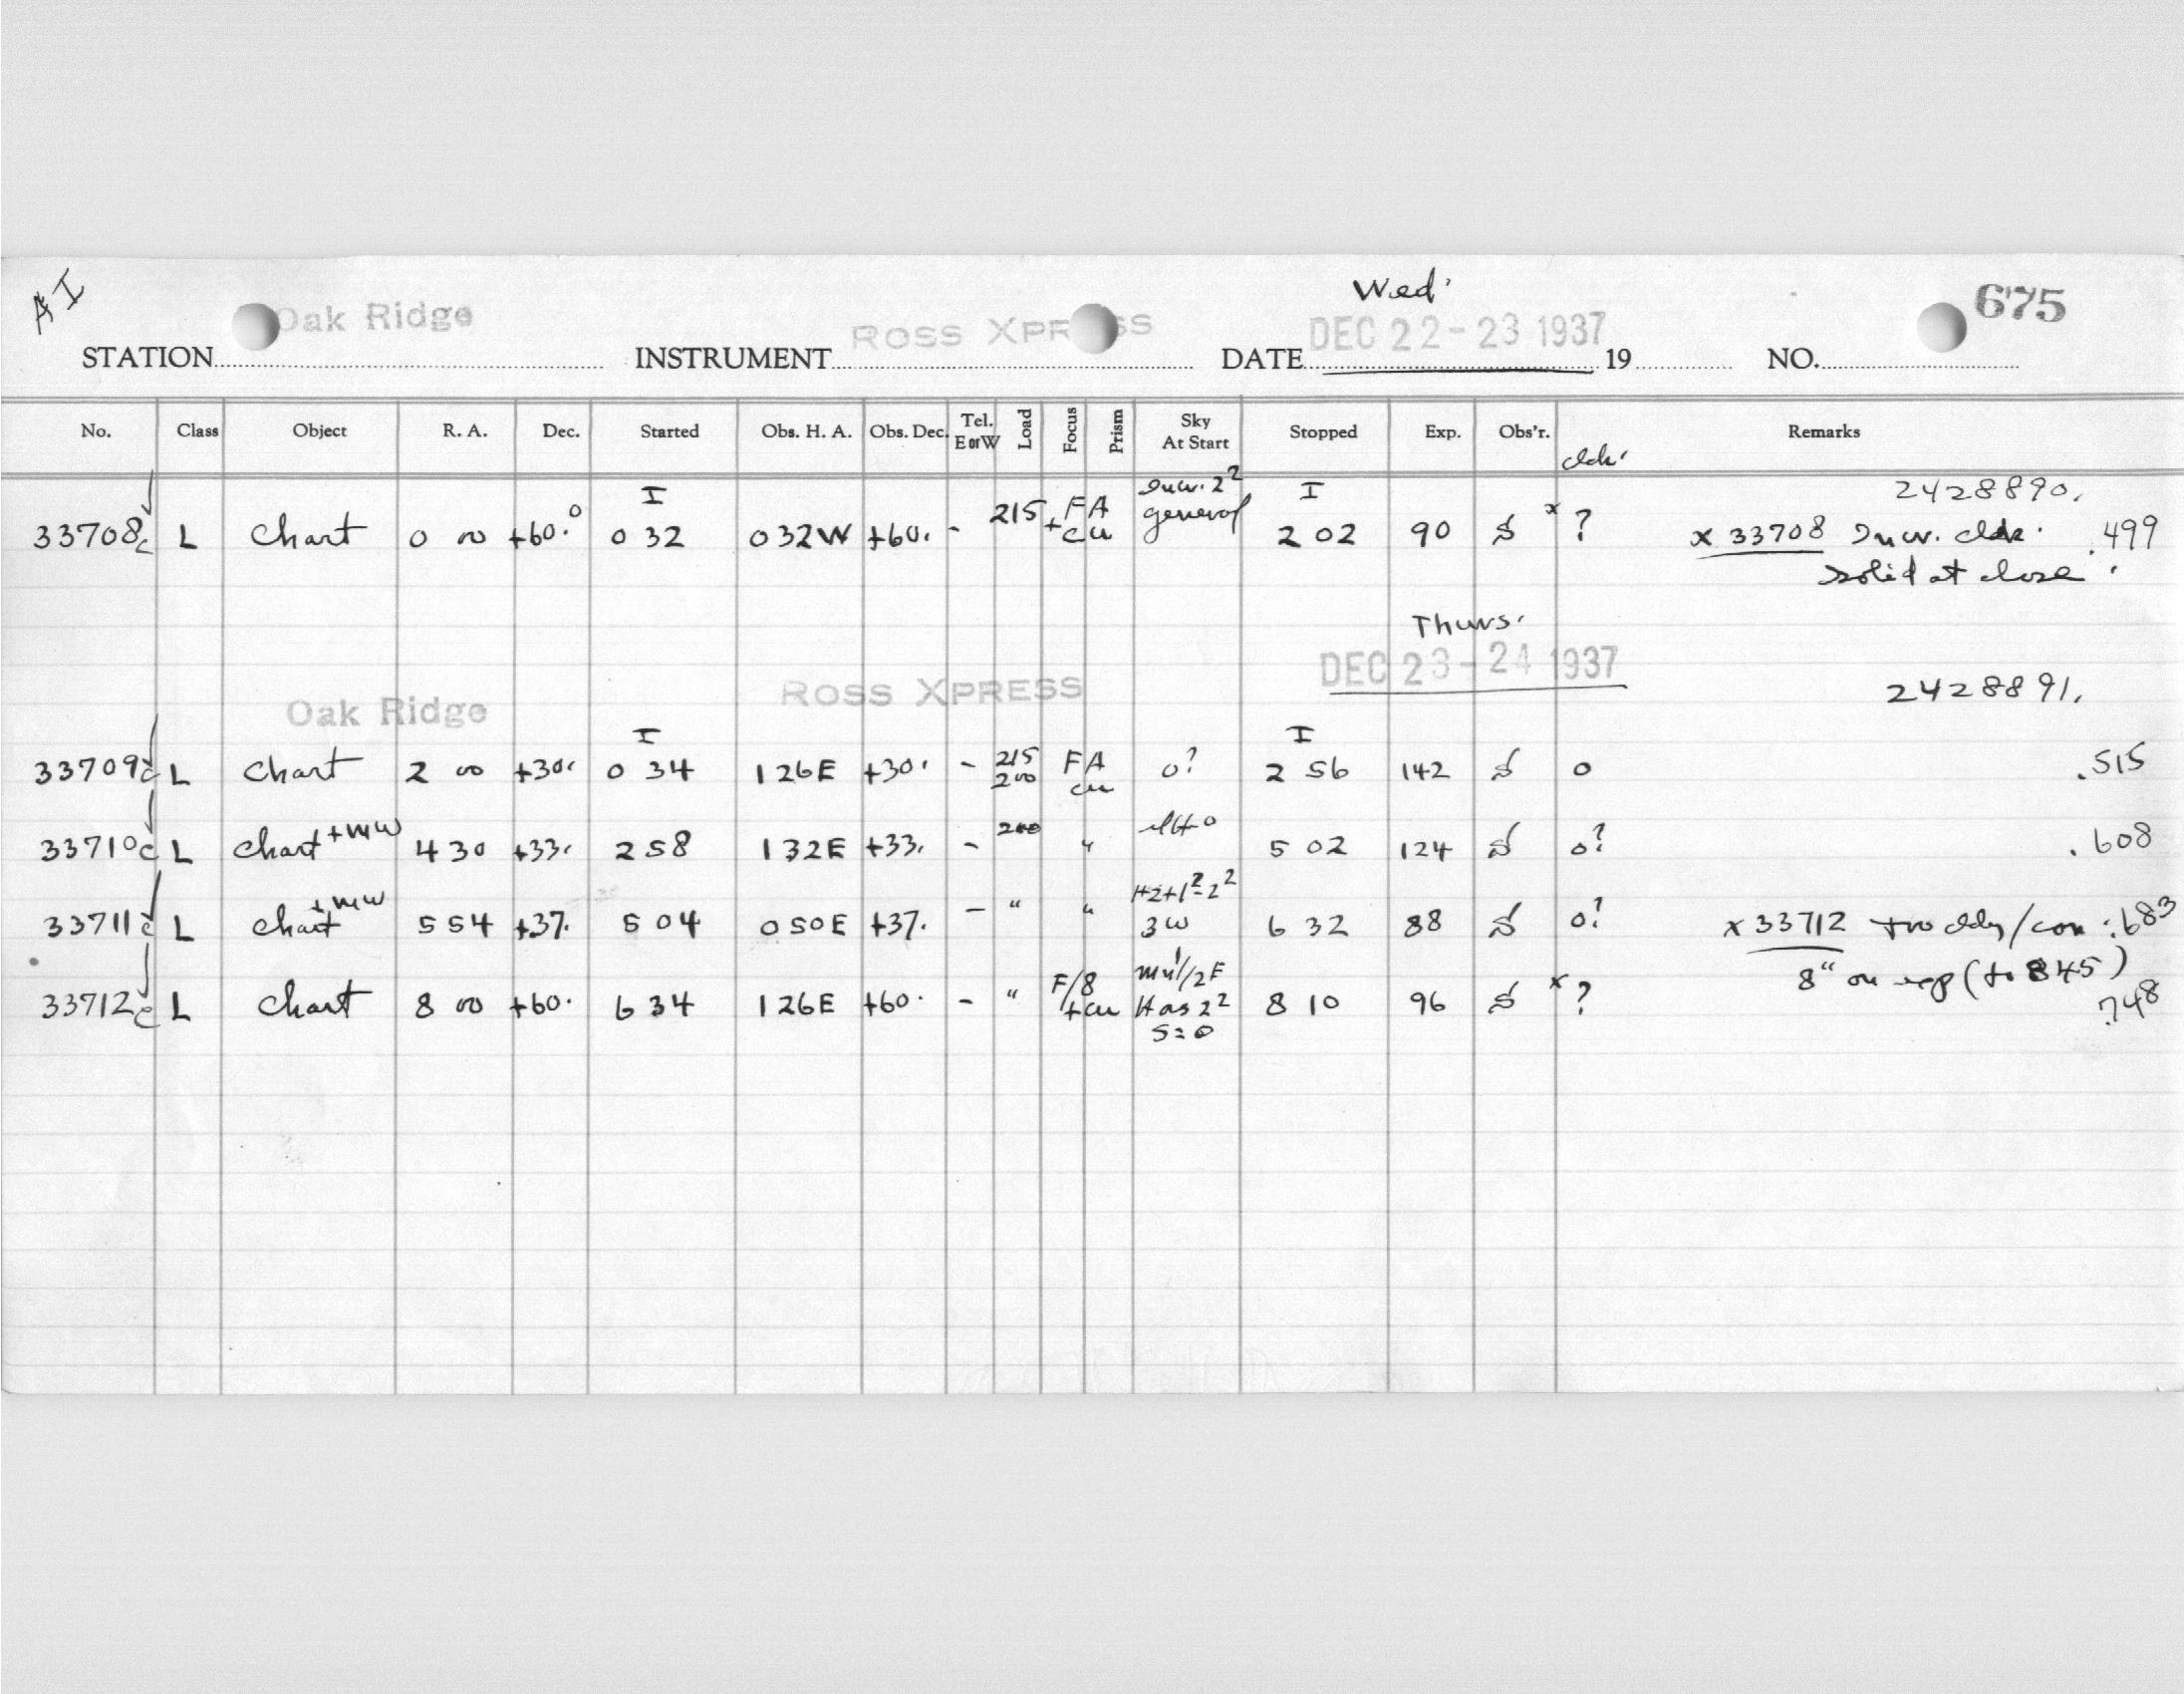 AI
Wed.
Oak Ridge ROSS XPRESS DEC 22-23 1937 675
STATION INSTRUMENT DATE 19 NO.
No. Class Object R. A. Dec. Started Obs. H. A. Obs. Dec. Tel. E or W Load Focus Prism Sky At Start Stopped Exp. Obs'r. Remarks
I 2² I 2428890.
33708c L Chart 0 00 +60.° 0 32 0 32W +60. - 215 + FA cu general 2 02 90 S x ? x 33708 .499
solid at close.
Thurs.
DEC 23-24 1937
Oak Ridge ROSS XPRESS 2428891.
I I
33709c L Chart 2 00 +30. 0 34 1 26E +30. - 215 200 FA cu 0? 2 56 142 S 0 .515
33710c L Chart +MW 4 30 +33. 2 58 1 32E +33. - 200 " 5 02 124 S 0? .608
33711c L Chart +MW 5 54 +37. 5 04 0 50E +37. - " " 3W 6 32 88 S 0? x 33712 .683
8" on (to 845)
33712c L Chart 8 00 +60. 6 34 1 26E +60. - " F/8 +cu H as 2² S=0 8 10 96 S x ? .748